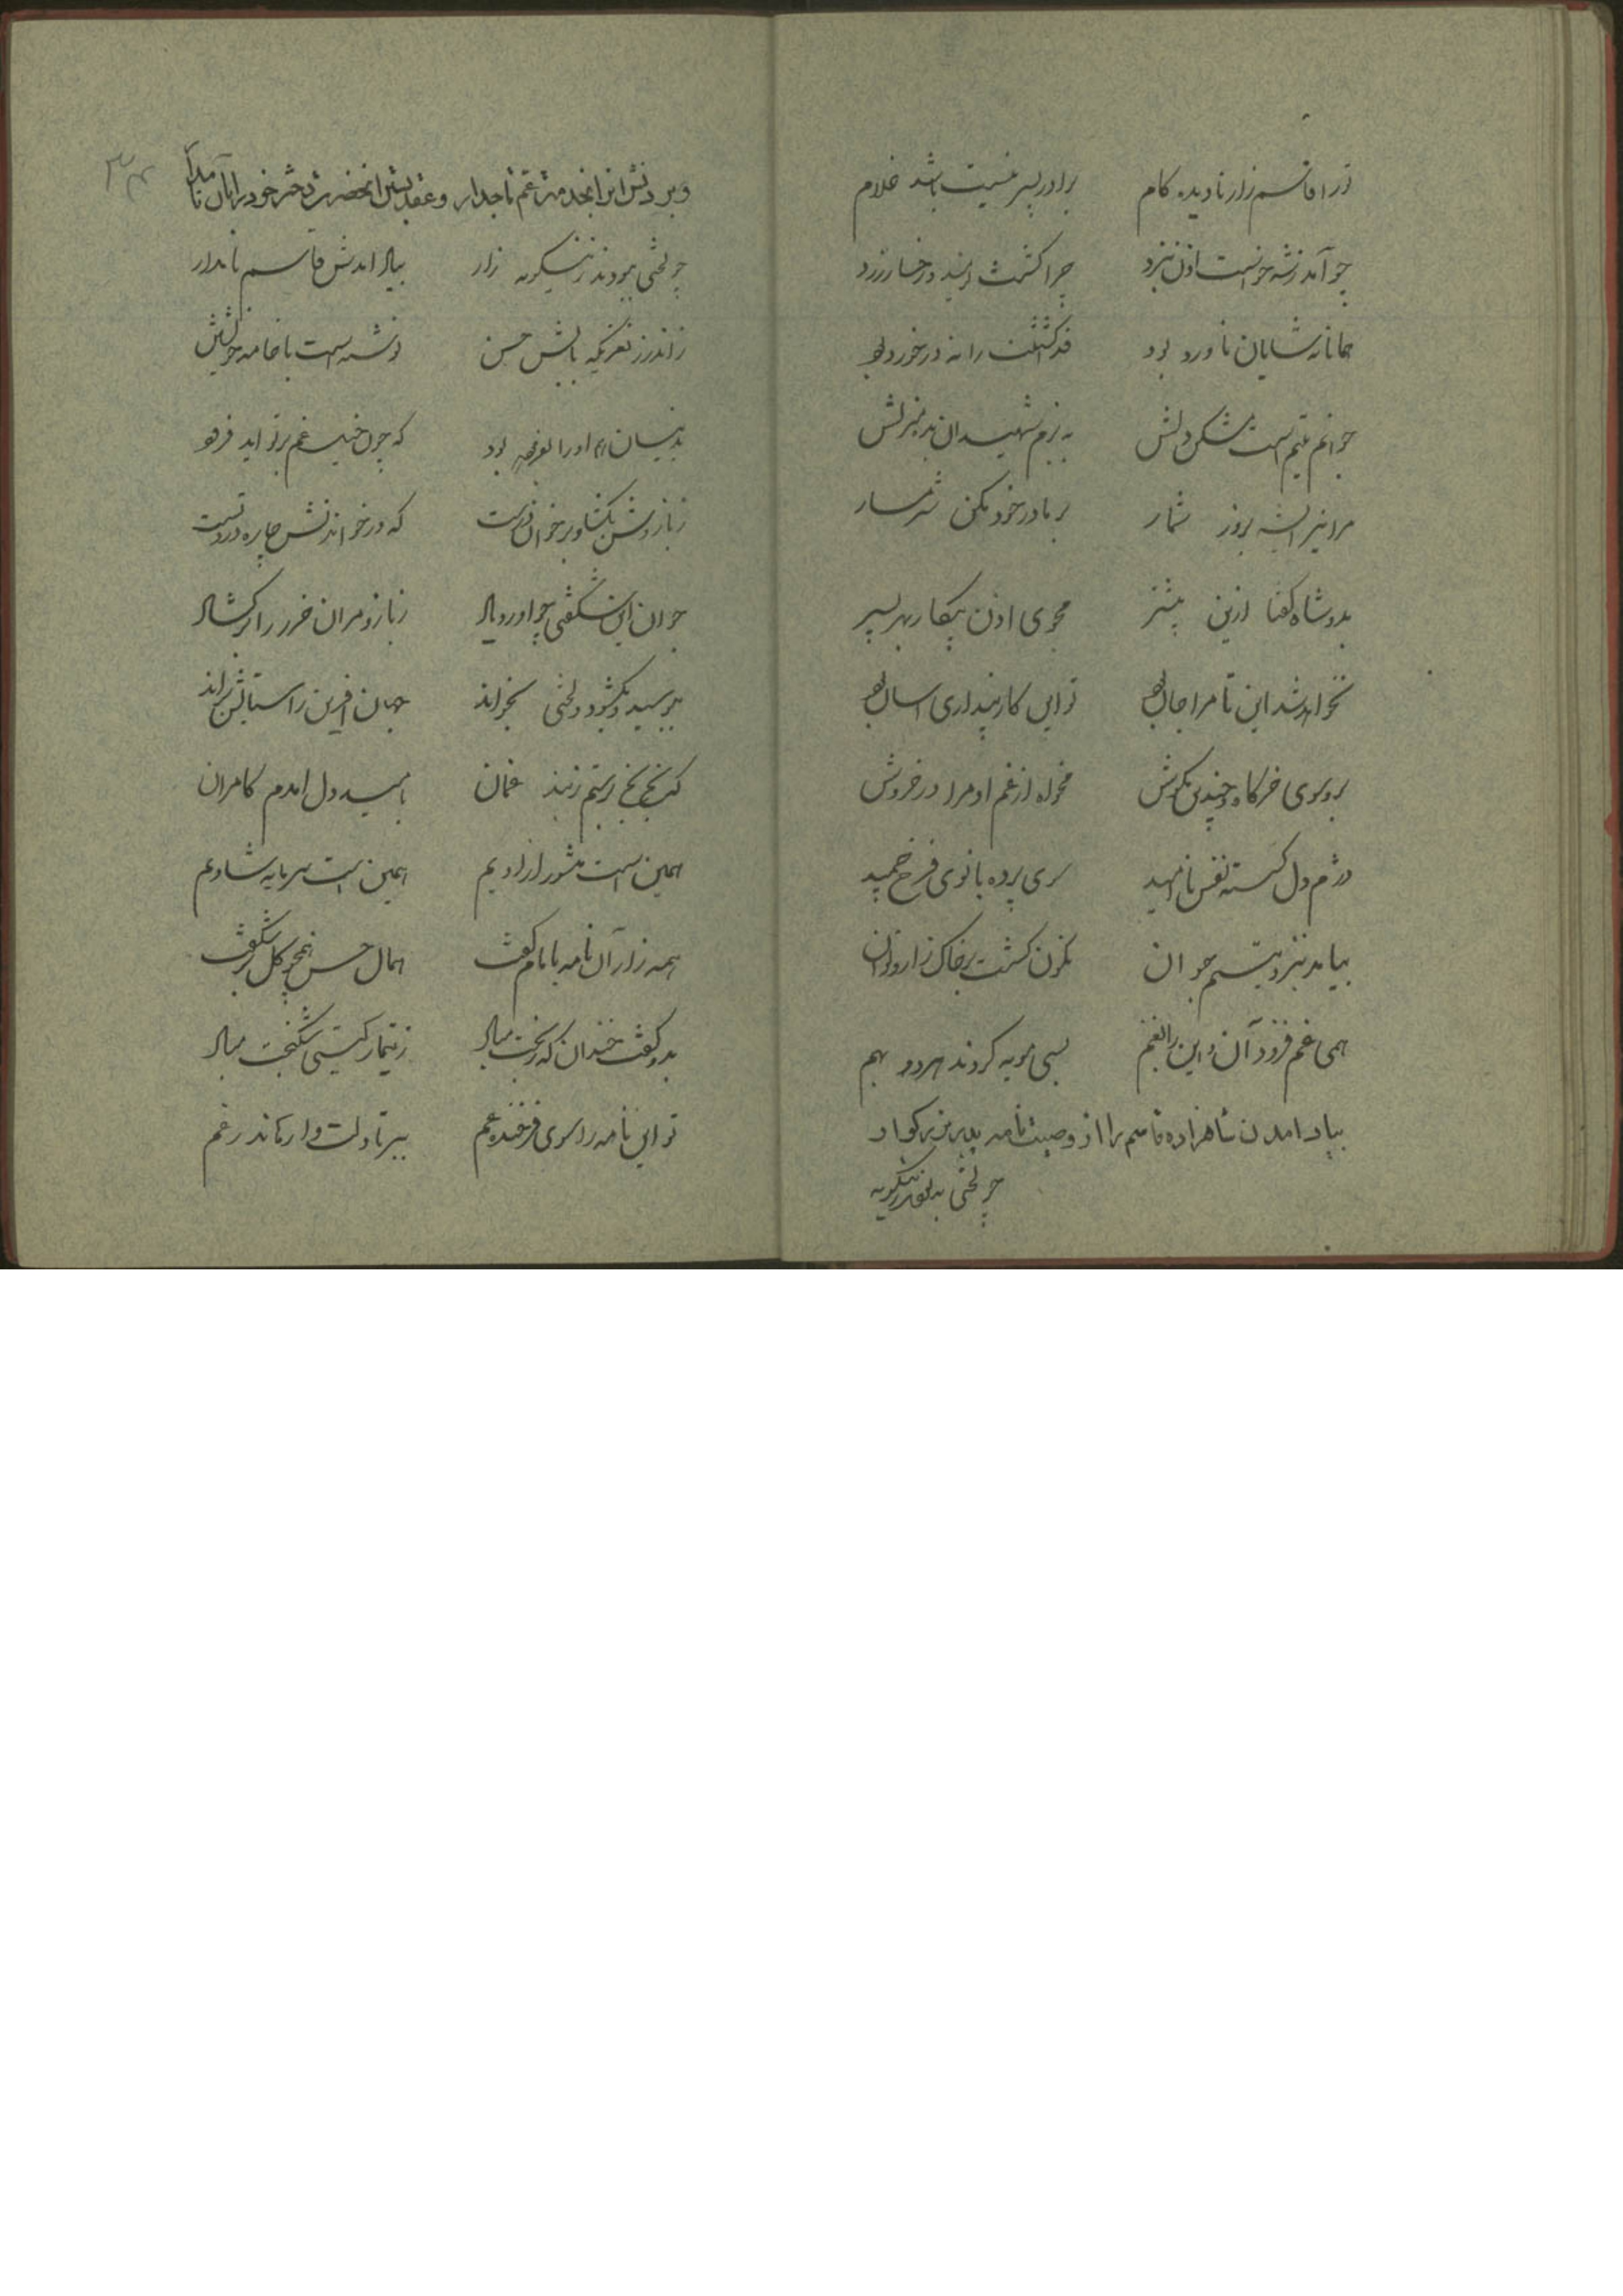 ترا قاسم زار نادیده کام برادر پسر نیست باشد غلام
چو آمد ز شه خواست اذن نبرد چرا گشت نومید و رخسار زرد
همانا نه شایان ناورد بود قد کشتنت را نه در خورد بود
جوانم یتیم است مشکن دلش به بزم شهیدان بده منزلش
مرا نیز ای شه بروز شمار بر مادر خود مکن شرمسار
بدو شاه گفتا ازین بیشتر مجوی اذن پیکار بهر پسر
نخواهد شد این تا مرا جان بود تو این کار پنداری آسان بود
برو سوی خرگاه و چندین مکوش مخواه از غم او مرا در خروش
دژم دل گسسته نفس ناامید سوی پرده بانوی فرخ خمید
بیامد بنزد یتیم جوان نگون گشت بر خاک زار و نوان
همی غم فزود آن و این را بغم بسی مویه کردند هر دو بهم
بیاد امدن شاهزاده قاسم را از وصیت نامه پدر بزرگوار
چو لختی بدینگونه
وبردنش انرا بخدمت عم تاجدار وعقد بستن انحضرت دختر خود را بان
چو لختی نمودند زینگونه زار بیاد امدش قاسم نامدار
ز اندرز نغزیکه بابش حسن نوشته است با خامه خویشتن
بدینسان او را بفرموده بود که چون خیل غم بر تو اید فرود
ز بازوش بگشا و بر خوان درست که در خواندنش چاره درد تست
جوان این شگفتی چو اورد یاد ز بازو مران حرز را برگشاد
ببوسید و بگشود و لختی بخواند جهان افرین را ستایش براند
که بخ بخ برستم ز بند غمان بامید دل امدم کامران
همین است منشور ازادیم همین است سرمایه شادیم
همه راز آن نامه با مام گفت همال حسن همچو گل بر شگفت
بدو گفت خندان که بختت بیاد ز تیمار گیتی شکنجت مباد
تو این نامه را سوی فرخنده عم ببر تا دلت وا رهاند ز غم